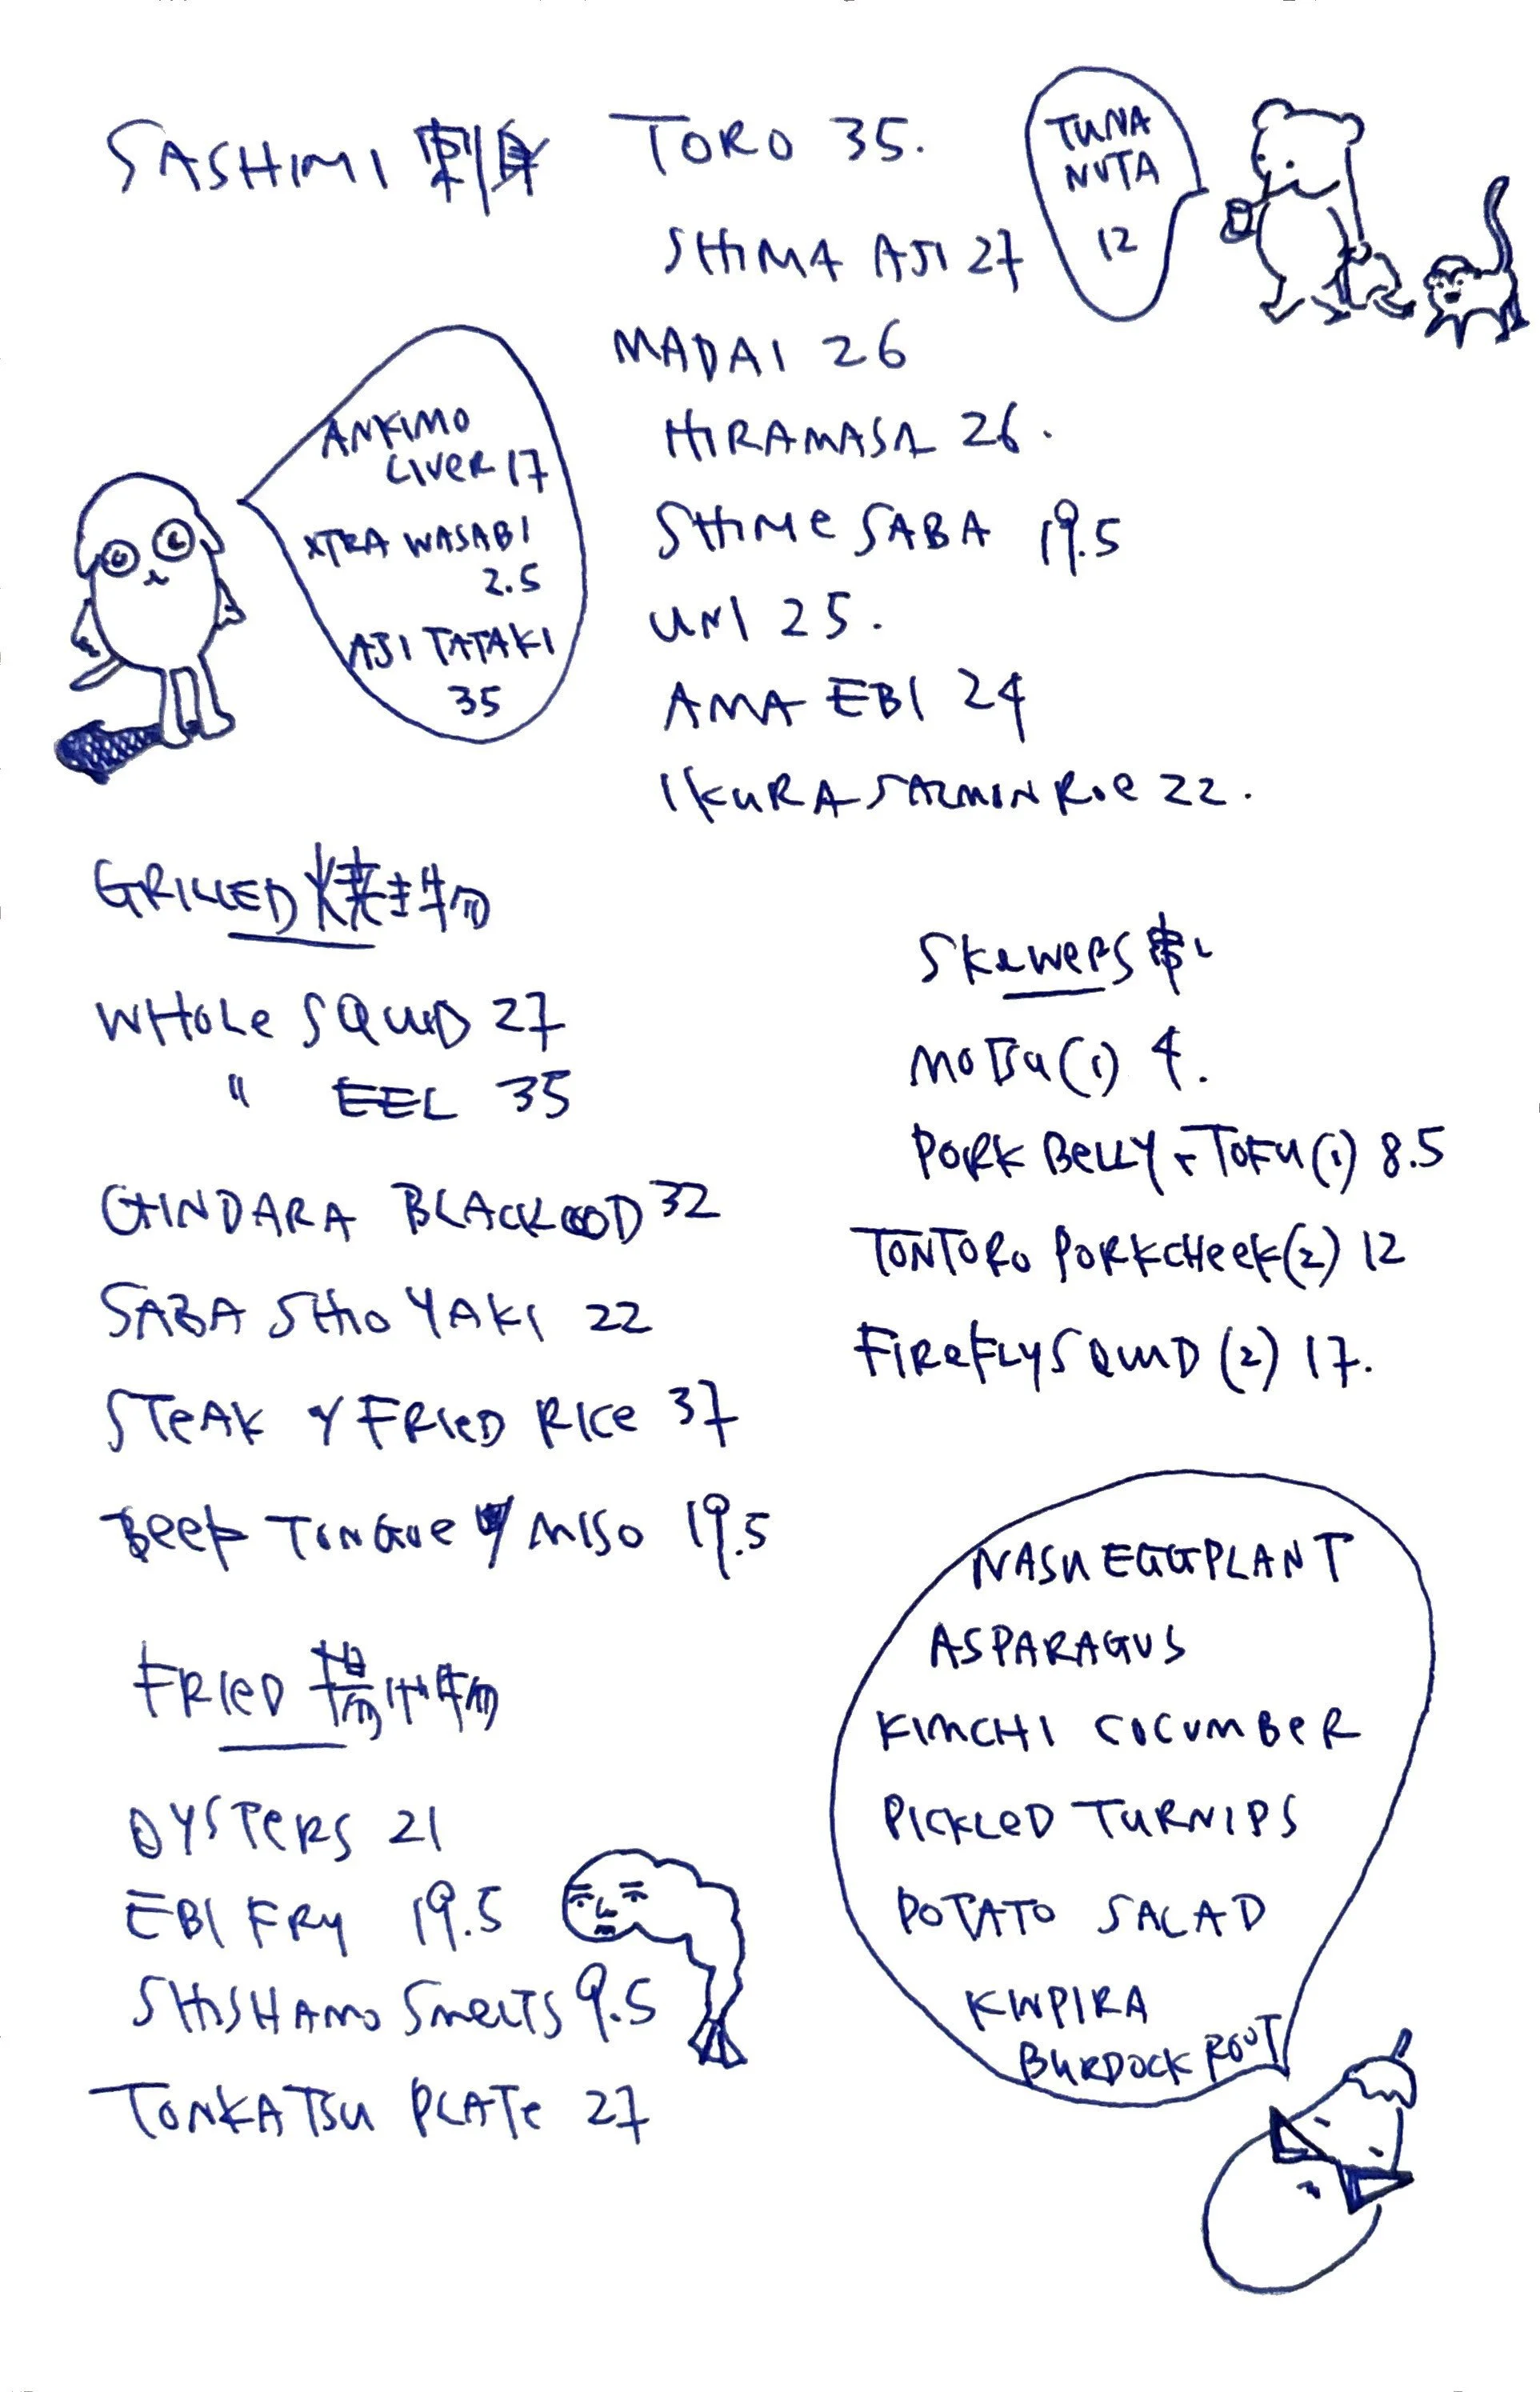 SASHIMI 刺身
TORO 35.
SHIMA AJI 27
MADAI 26
HIRAMASA 26.
SHIMe SABA 19.5
UNI 25.
AMA EBI 24
IKURA SALMON Roe 22.
TUNA
NUTA
12
ANKIMO
LIVER 17
XTRA WASABI
2.5
AJI TATAKI
35
GRILLED 焼き物
WHOLe SQUID 27
" EEL 35
GINDARA BLACKCOD 32
SABA SHIO YAKI 22
STeAK Y FRIED RICe 37
BeeF TONGUe Y MISO 19.5
SKeWeRS 串
MOTSU (1) 4.
PORK BeLLY - TOFU (1) 8.5
TONTORO PORKCHeeK (2) 12
FIReFLY SQUID (2) 17.
FRIeD 揚げ物
OYSTeRS 21
EBI FRY 19.5
SHISHAMO SmeLTS 9.5
TONKATSU PLATe 27
NASU EGGPLANT
ASPARAGUS
KIMCHI COCUMBeR
PICKLeD TURNIPS
POTATO SALAD
KINPIRA
BURDOCK ROOT